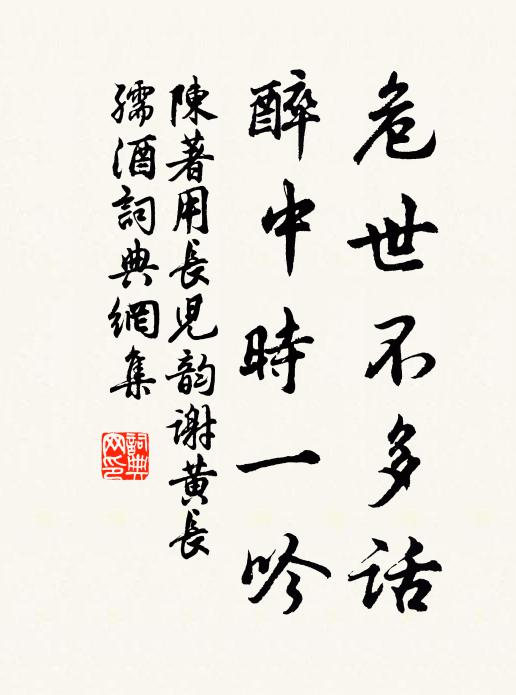 危世不多話
醉中時一吟
陳著用長兒韵謝黃長
孺酒詞典網集
詞典
网印